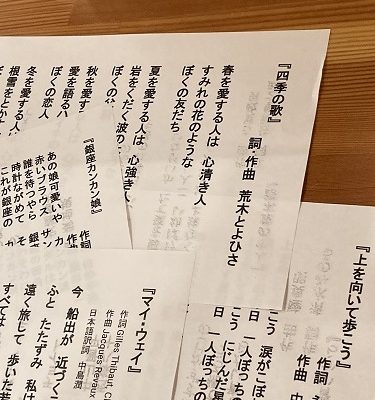 『四季の歌』
詞・作曲 荒木とよひさ
春を愛する人は 心清き人
すみれの花のような
ぼくの友だち
夏を愛する人は 心強き人
岩をくだく波の
ぼくの
秋を愛す
愛を語る
ぼくの恋人
冬を愛する人
根雪をとか
『銀座カンカン娘』
作詞
作
あの娘可愛いや カ
赤いブラウス サン
誰を待つやら 銀座
時計ながめて そ
これが銀座の
『上を向いて歩こう』
作詞
作曲 中
こう 涙がこぼ
日 一人ぼっちの
こう にじんだ星
日 一人ぼっちの
『マイ・ウェイ』
作詞 Gilles Thibaut, Cl
作曲 Jacques Revaux
日本語訳詞 中島潤
今 船出が 近づく
ふと たたずみ 私は
遠く旅して 歩いた
すべて